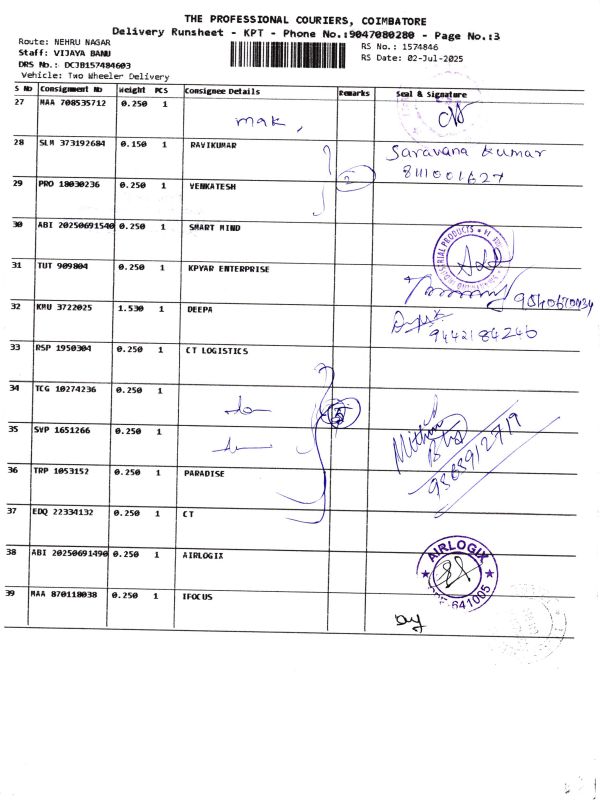 THE PROFESSIONAL COURIERS, COIMBATORE
Delivery Runsheet - KPT - Phone No.:9047080280 - Page No.:3
Route: NEHRU NAGAR
RS No.: 1574846
Staff: VIJAYA BANU
RS Date: 02-Jul-2025
DRS No.: DCJB157484603
Vehicle: Two Wheeler Delivery
S No Consignment No Weight PCS Consignee Details Remarks Seal & Signature
27 MAA 708535712 0.250 1
mak,
28 SLM 373192684 0.150 1 RAVIKUMAR
Saravana Kumar
8111001627
29 PRO 18030236 0.250 1 VENKATESH 2
30 ABI 20250691540 0.250 1 SMART MIND
INDUSTRIAL PRODUCTS
31 TUT 909804 0.250 1 KPYAR ENTERPRISE
32 KMU 3722025 1.530 1 DEEPA
9442184246
33 RSP 1950304 0.250 1 CT LOGISTICS
34 TCG 10274236 0.250 1
5
35 SVP 1651266 0.250 1
Mithun
36 TRP 1053152 0.250 1 PARADISE
37 EDQ 22334132 0.250 1 CT
38 ABI 20250691490 0.250 1 AIRLOGIX
AIRLOGIX
641005
39 MAA 870118038 0.250 1 IFOCUS